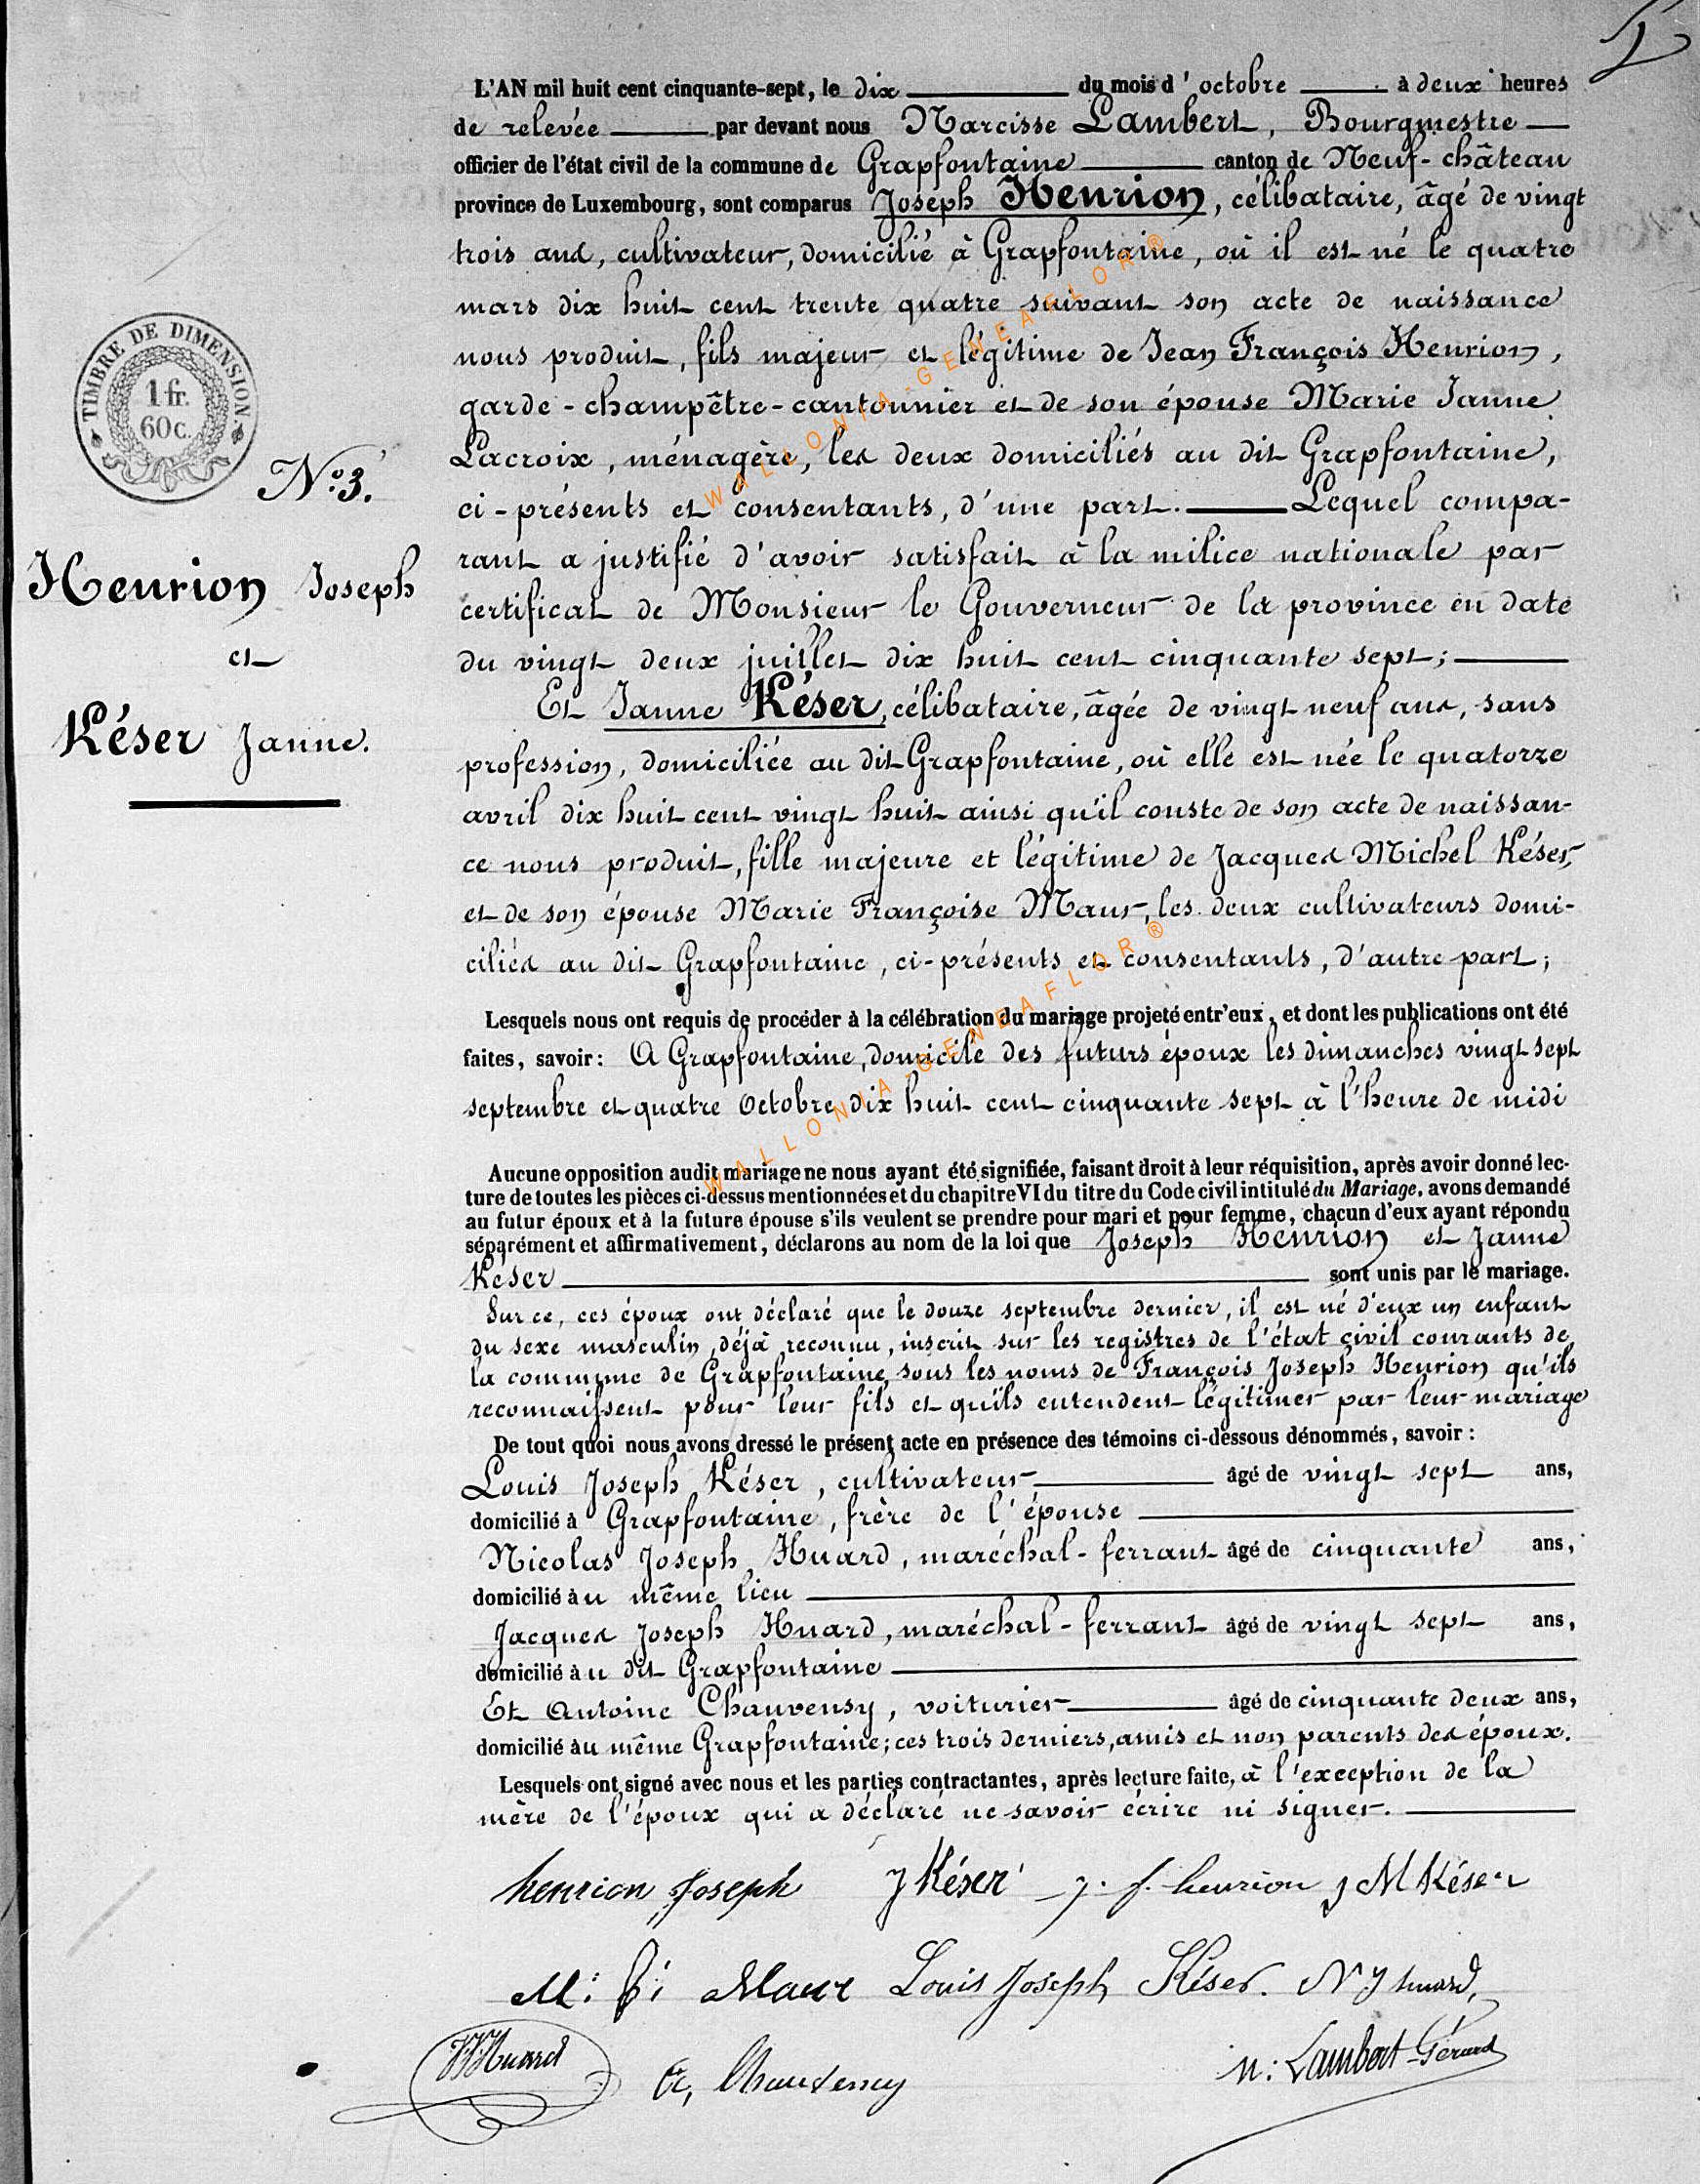 L'AN mil huit cent cinquante-sept, le dix du mois d' octobre à deux heures
de relevée par devant nous Narcisse Lambert, Bourgmestre
officier de l'état civil de la commune de Grapfontaine canton de Neuf-château
province de Luxembourg, sont comparus Joseph Henrion, célibataire, âgé de vingt
trois ans, cultivateur, domicilié à Grapfontaine, où il est né le quatre
mars dix huit cent trente quatre suivant son acte de naissance
nous produit, fils majeur et légitime de Jean François Henrion,
garde-champêtre-cantonnier et de son épouse Marie Janne
Lacroix, ménagère, les deux domiciliés au dit Grapfontaine,
ci-présents et consentants, d'une part. Lequel compa-
rant a justifié d'avoir satisfait à la milice nationale par
certificat de Monsieur le Gouverneur de la province en date
du vingt deux juillet dix huit cent cinquante sept;
Et Janne Késer, célibataire, âgée de vingt neuf ans, sans
profession, domiciliée au dit Grapfontaine, où elle est née le quatorze
avril dix huit cent vingt huit ainsi qu'il conste de son acte de naissan-
ce nous produit, fille majeure et légitime de Jacques Michel Késer,
et de son épouse Marie Françoise Maur, les deux cultivateurs domi-
ciliés au dit Grapfontaine, ci-présents et consentants, d'autre part;
Lesquels nous ont requis de procéder à la célébration du mariage projeté entr'eux, et dont les publications ont été
faites, savoir: A Grapfontaine, domicile des futurs époux les dimanches vingt sept
septembre et quatre Octobre dix huit cent cinquante sept à l'heure de midi
Aucune opposition audit mariage ne nous ayant été signifiée, faisant droit à leur réquisition, après avoir donné lec-
ture de toutes les pièces ci-dessus mentionnées et du chapitre VI du titre du Code civil intitulé du Mariage, avons demandé
au futur époux et à la future épouse s'ils veulent se prendre pour mari et pour femme, chacun d'eux ayant répondu
séparément et affirmativement, déclarons au nom de la loi que Joseph Henrion et Janne
Késer sont unis par le mariage.
Sur ce, ces époux ont déclaré que le douze septembre dernier, il est né d'eux un enfant
du sexe masculin, déjà reconnu, inscrit sur les registres de l'état civil courants de
la commune de Grapfontaine, sous les noms de François Joseph Henrion qu'ils
reconnaissent pour leur fils et qu'ils entendent légitimer par leur mariage
De tout quoi nous avons dressé le présent acte en présence des témoins ci-dessous dénommés, savoir:
Louis Joseph Késer, cultivateur âgé de vingt sept ans,
domicilié à Grapfontaine, frère de l'épouse
Nicolas Joseph Huard, maréchal-ferrant âgé de cinquante ans,
domicilié au même lieu
Jacques Joseph Huard, maréchal-ferrant âgé de vingt sept ans,
domicilié au dit Grapfontaine
Et Antoine Chauvensy, voiturier âgé de cinquante deux ans,
domicilié au même Grapfontaine; ces trois derniers, amis et non parents des époux.
Lesquels ont signé avec nous et les parties contractantes, après lecture faite, à l'exception de la
mère de l'époux qui a déclaré ne savoir écrire ni signer.
henrion Joseph J Késer j. f. henrion J M Késer
M: f: Maur Louis Joseph Késer. N J huard,
JJHuard A, Chauvency n: Lambert-Gérard
TIMBRE DE DIMENSION.
1 fr.
60 c.
N°3.
Henrion Joseph
et
Késer Janne.
WALLONIA-GENEAFLOR®
WALLONIA-GENEAFLOR®